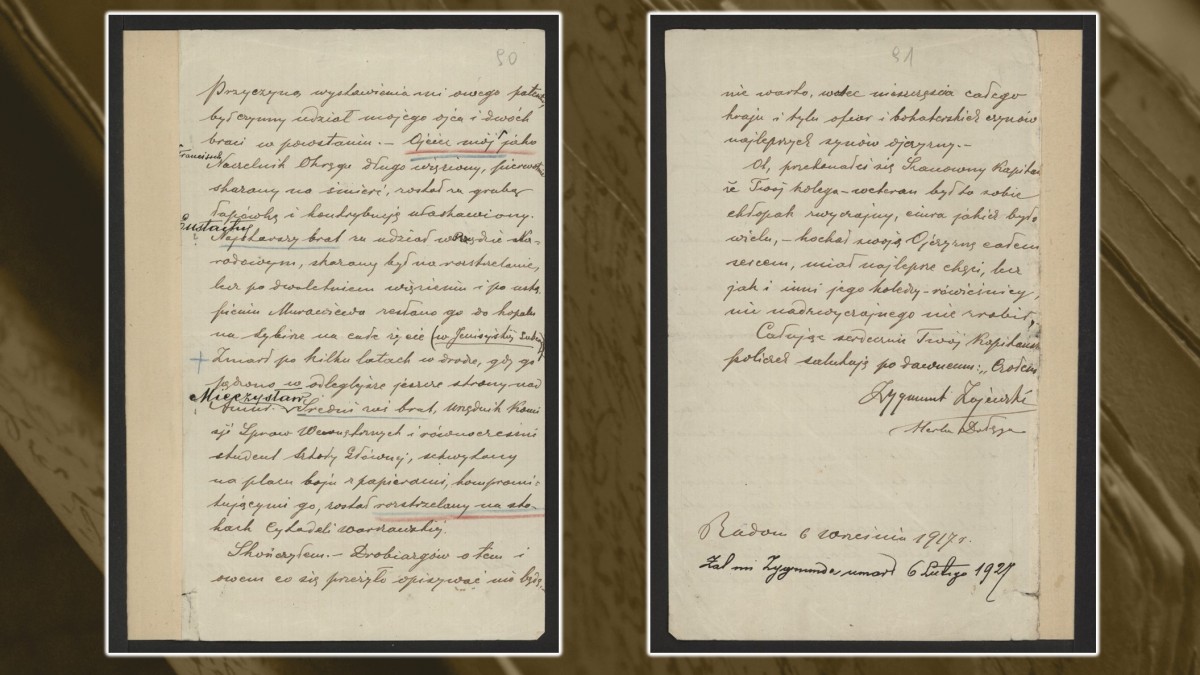 90
Przyczyną wystawienia mi owego
był czynny udział mojego ojca i dwóch
braci w powstaniu. — Ojciec mój jako
Franciszek
Naczelnik Okręgu długo więziony, pierwotnie
skazany na śmierć, został za grubą
łapówką i kontrybucją ułaskawiony.
Eustachy
Najstarszy brat za udział w Rządzie Na-
rodowym, skazany był na rozstrzelanie,
lecz po dwuletniem więzieniu i po ustą-
pieniu Murawiewa zesłano go do kopalń
na Sybirze na całe życie (w
+ Zmarł po kilku latach w drodze, gdy go
pędzono w odleglejsze jeszcze strony nad
Mieczysław
Średni zaś brat, urzędnik Komi
sji Spraw Wewnętrznych i równocześnie
student Szkoły Głównej, schwytany
na placu boju z papierami, kompromi-
tującymi go, został rozstrzelany na sto-
kach Cytadeli warszawskiej.
Skończyłem. — Drobiazgów o tem i
owem co się przeżyło opisywać nie będę,
91
nie warto, wobec nieszczęścia całego
kraju i tylu ofiar i bohaterskich czynów
najlepszych synów ojczyzny. —
Ot, przekonałeś się Szanowny Kapitan
że Twój kolega-weteran był to sobie
chłopak zwyczajny, ciura jakich było
wielu, — kochał swoją Ojczyznę całem
sercem, miał najlepsze chęci, lecz
jak i inni jego koledzy-rówieśnicy,
nic nadzwyczajnego nie zrobił.
Całując serdecznie Twój Kapitański
policzek salutuję po dawnemu: „Czołem
Zygmunt Zajewski
Herbu Dołęga
Radom 6 września 1917 r.
Żal mi Zygmunda umarł 6 Lutego 192